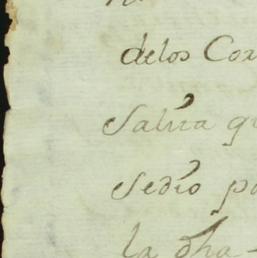 delos Cor
Salvia q
Sedio p
la dha